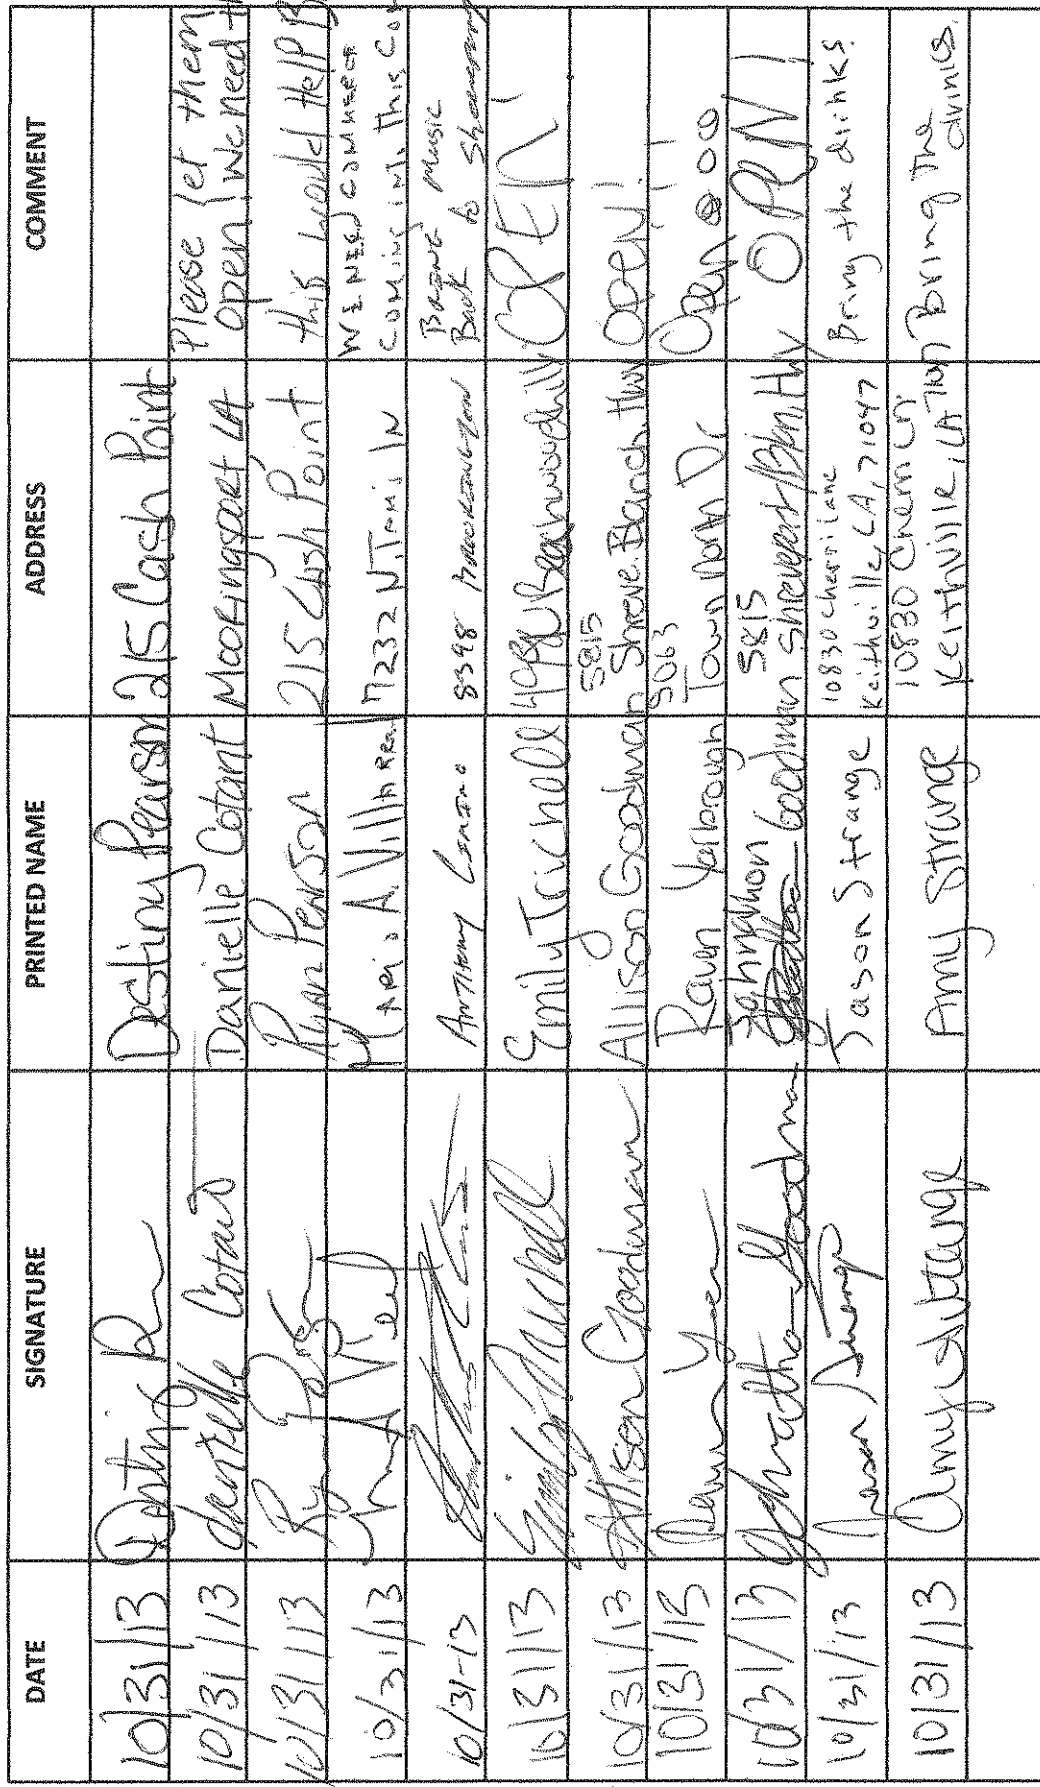 DATE SIGNATURE PRINTED NAME ADDRESS COMMENT
10/31/13 Destiny Pearson 215 Cash Point
10/31/13 Danielle Cotant Danielle Cotant Mooringsport LA Please let them
open! We need
10/31/13 Ryan Pearson 215 Cash Point this would Help
10/31/13 A. Villarreal 7232 N. Tami LN WE NEED COMMERCE
COMING INTO THIS
10/31-13 Anthony 8398 Bring Music
Back to Shreveport
10/31/13 Emily Trichell Emily Trichell Beachwood OPEN!
10/31/13 Allison Goodman Allison Goodman 5815
Shreve. Blanch. Hwy OPEN!!
10/31/13 Raven Yarbrough 5063
Town North Dr Open
10/31/13 Johnathon Goodman Johnathon Goodman 5815
Shreveport/Blan. Hwy OPEN!
10/31/13 Jason Strange Jason Strange 10830 Cherri lane
Keithville, LA, 71047 Bring the drinks!
10/31/13 Amy Strange Amy Strange 10830 Cherri Ln
Keithville, LA Bring The
drinks.